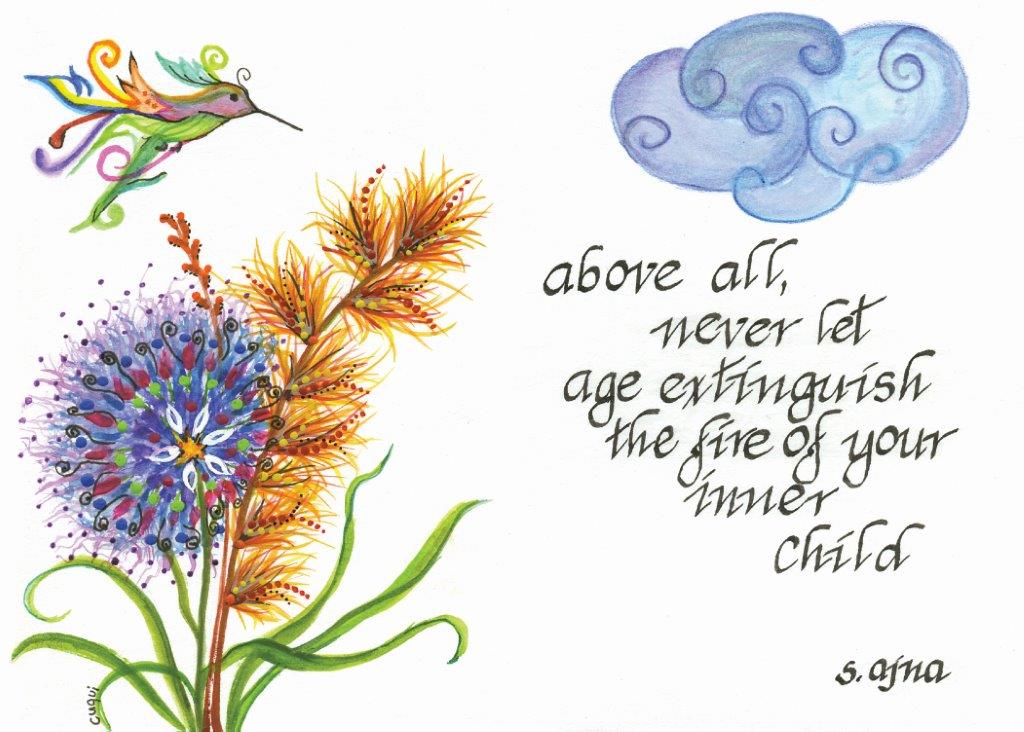 above all,
never let
age extinguish
the fire of your
inner
child
s. ajna
cuqui